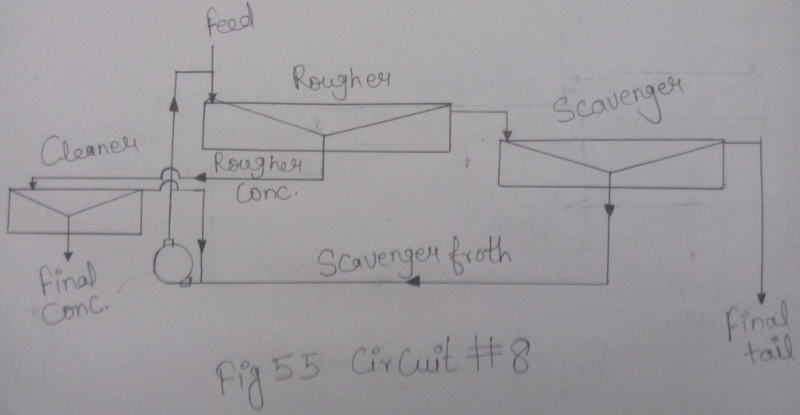 feed
Rougher
Scavenger
Cleaner
Rougher
Conc.
Scavenger froth
Final
Conc.
Final
tail
Fig 55 Circuit #8